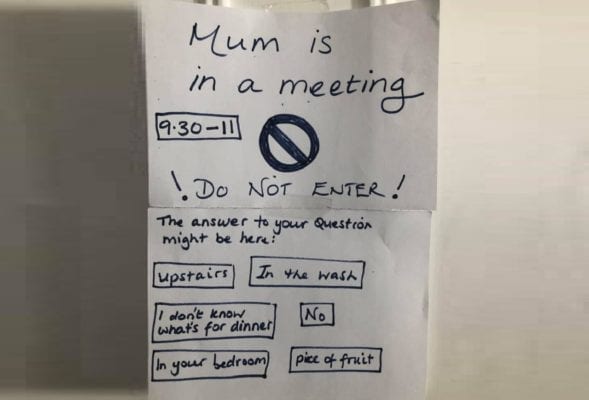 Mum is
in a meeting
9.30-11
! DO NOT ENTER!
The answer to your Question
might be here:
upstairs
In the wash
I don't know
what's for dinner
No
In your bedroom
pice of fruit